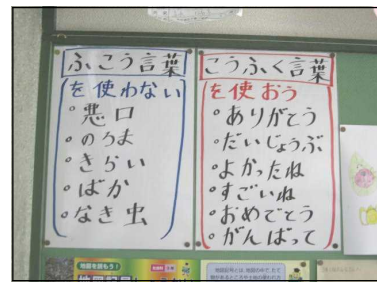 ふこう言葉
を使わない
°悪口
°のろま
°きらい
°ばか
°なき虫
こうふく言葉
を使おう
°ありがとう
°だいじょうぶ
°よかったね
°すごいね
°おめでとう
°がんばって
地図を読もう!